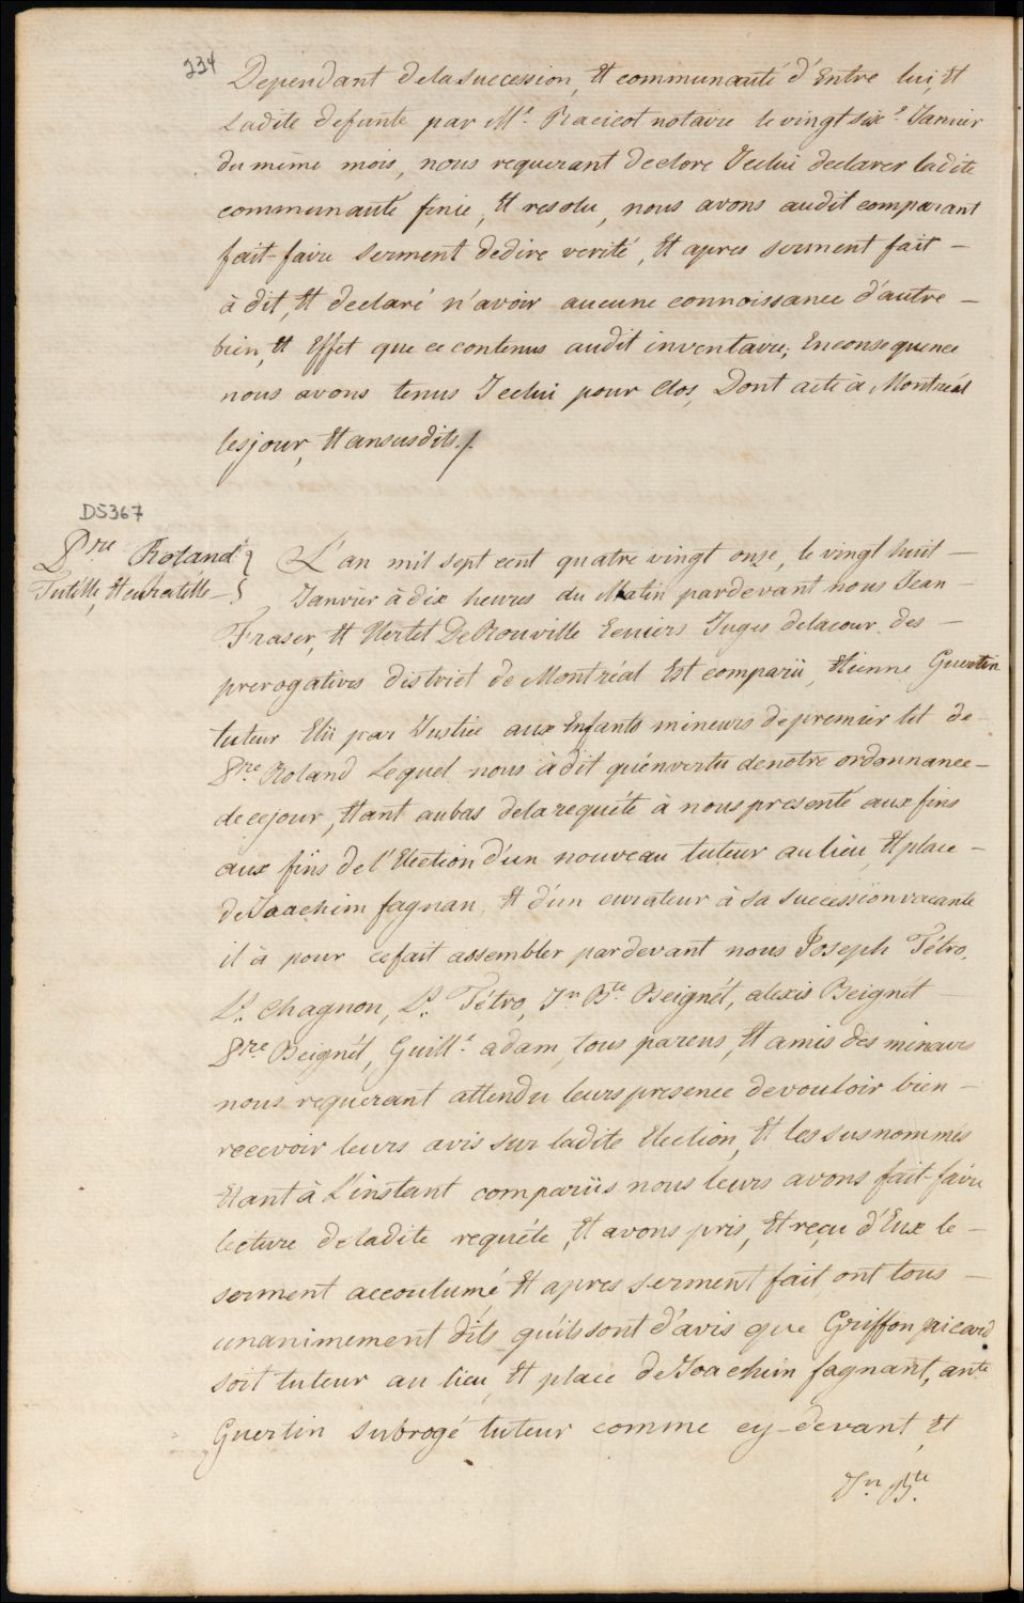 234
Dependant delasuccession, Et communauté d'Entre lui, Et
Ladite defunte par Me. Racicot notaire le vingt six e. Janvier
du même mois, nous requerant declore Icelui declarer ladite
communauté finie, Et resolu, nous avons audit comparant
fait-faire serment dedire verité, Et apres serment fait —
à dit, Et declaré n'avoir aucune connoissance d'autre —
bien, Et Effet que ce contenus audit inventaire; Enconsequence
nous avons tenus Icelui pour Clos, Dont acte à Montréal
lesjour, Et ansusdits./.
DS367
Pre Roland }
Tutelle, Et curatelle — }
L'an mil sept cent quatre vingt onze, le vingt huit —
Janvier à dix heures du Matin pardevant nous Jean —
Fraser, Et Hertel DeRouville Ecuiers Juges delacour des —
prerogatives district de Montréal Est comparü, Etienne Guertin
tuteur Elü par Justice aux Enfants mineurs depremier lit de
Pre Roland Lequel nous à dit qu'envertu denotre ordonnance —
decejour, Etant aubas delarequête à nous presenté aux fins
aux fins del'Election d'un nouveau tuteur aulieu, Et place —
deJoachim fagnan, Et d'un curateur à sa successionvacante
il à pour cefait assembler pardevant nous Joseph Tétro,
Ls. Chagnon, Ls. Tétro, Jn Bte. Beignét, alexis Beignét
Pre Beignét, Guille. adam, tous parens, Et amis des mineurs
nous requerant attendu leurspresence devouloir bien —
recevoir leurs avis sur ladite Election, Et les susnommés
Etant à L'instant comparüs nous leurs avons fait-faire
lecture deladite requête, Et avons pris, Et reçu d'Eux le —
serment accoutumé, Et apres serment fait ont tous —
unanimement dits qu'ilssont d'avis que Griffon picard
soit tuteur au lieu, Et place deJoachim fagnant, ante
Guertin subrogé tuteur comme cy-devant, Et
Jn Bte.